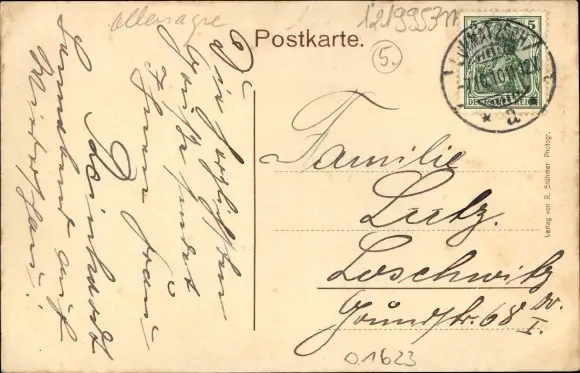 Allemagne
1219953n
5.
Postkarte.
5
LOMMATZSCH
10.11
* a *
DEUTSCHES REICH
Die herzlichsten
Grüße sendet
Ihnen Frau
Reinhardt
Sonnabend auf
Wiedersehn!
Familie
Lutz.
Loschwitz
Grundstr. 68
I.
Verlag von R. Sühner Photogr.
01623